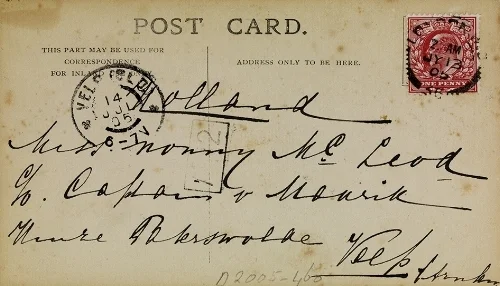 POST CARD.
THIS PART MAY BE USED FOR
CORRESPONDENCE
FOR INLAND
ADDRESS ONLY TO BE HERE.
LONDON
JY 13
05
ONE PENNY
VELP
14
JUL
05
6-7N
Holland
12
Miss Nonny Mc Leod
c/o Captain v Mourik
Huize
Velp
D2005-460